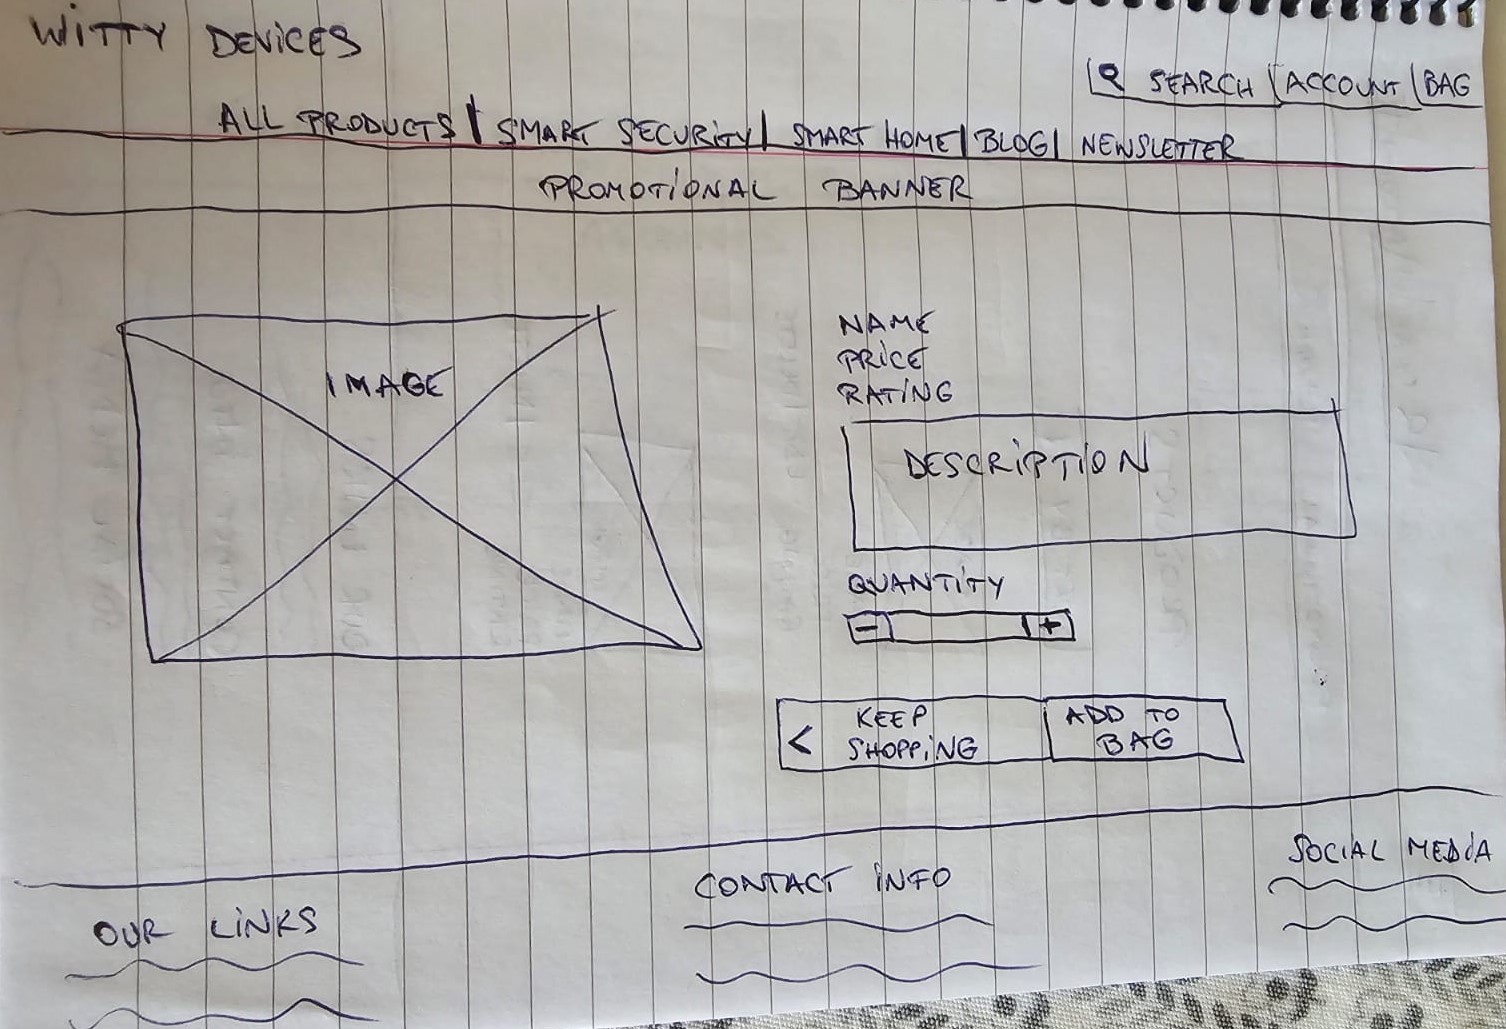 WITTY DEVICES
SEARCH | ACCOUNT | BAG
ALL PRODUCTS | SMART SECURITY | SMART HOME | BLOG | NEWSLETTER
PROMOTIONAL BANNER
IMAGE
NAME
PRICE
RATING
DESCRIPTION
QUANTITY
- +
< KEEP
SHOPPING
ADD TO
BAG
OUR LINKS
CONTACT INFO
SOCIAL MEDIA